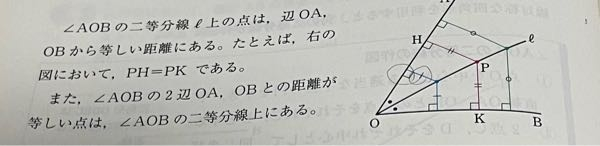 ∠AOBの二等分線ℓ上の点は，辺OA，
OBから等しい距離にある。たとえば，右の
図において，PH=PKである。
また，∠AOBの2辺OA，OBとの距離が
等しい点は，∠AOBの二等分線上にある。
H
ℓ
P
O
K
B